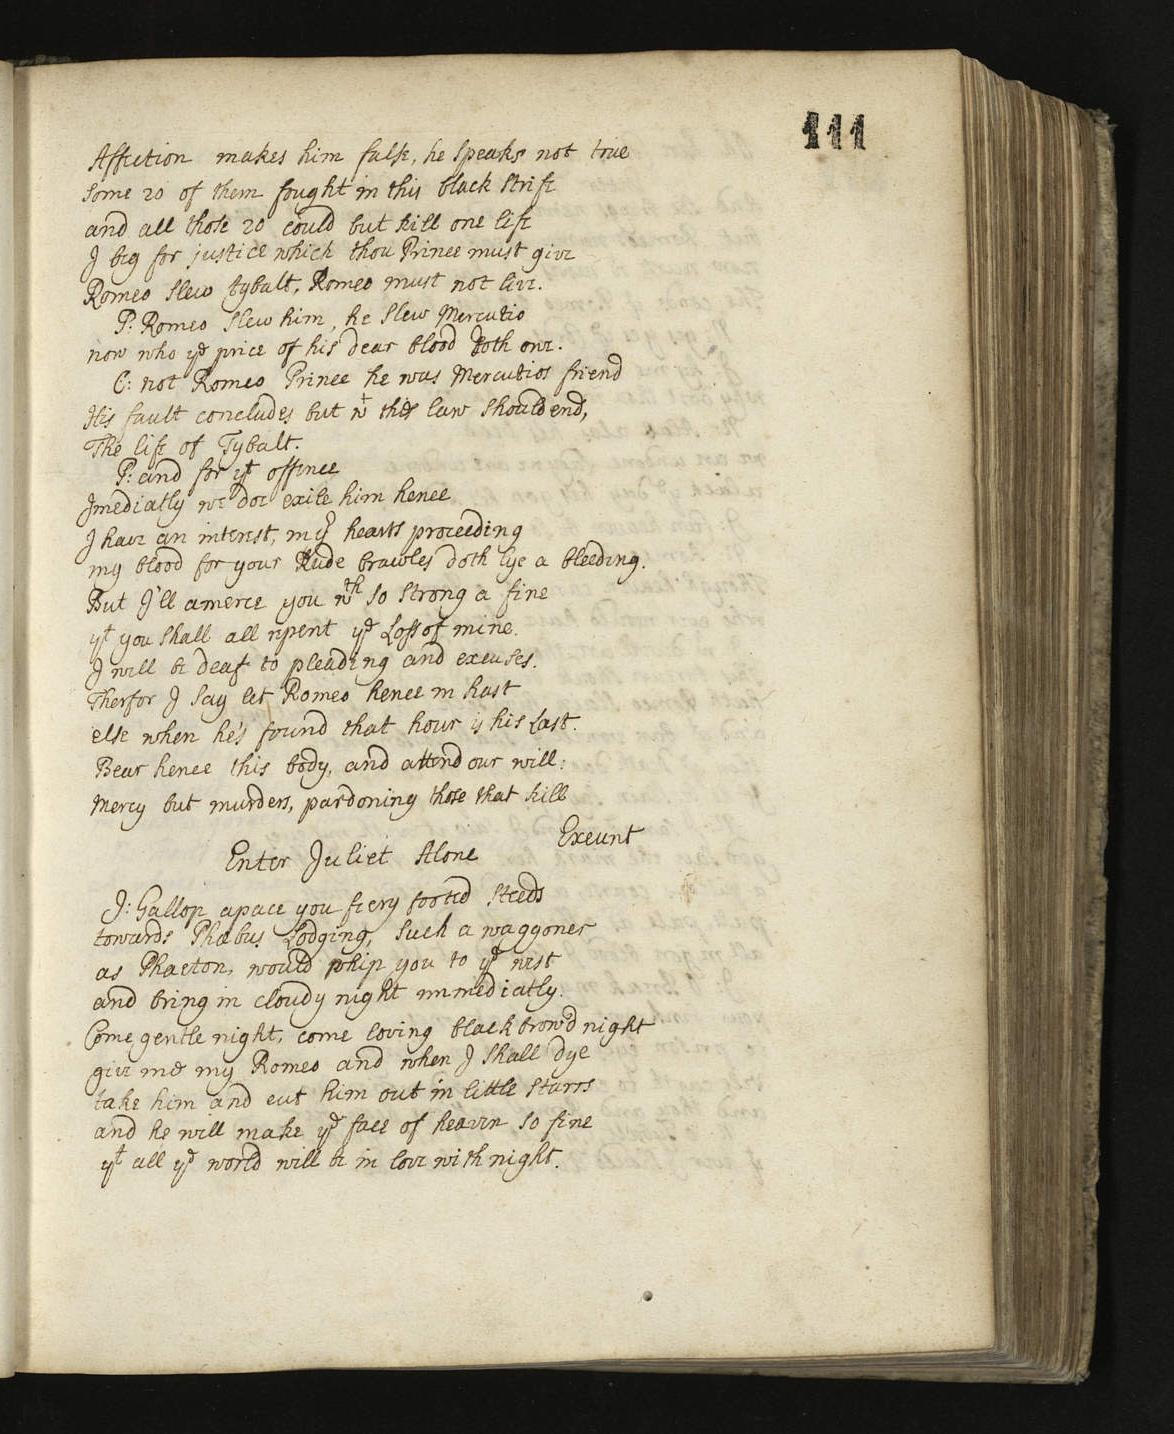 111
Affection makes him false, he speaks not true
some 20 of them fought in this black strife
and all those 20 could but kill one life
I beg for justice which thou Prince must give
Romeo slew tybalt, Romeo must not live.
P: Romeo slew him, he slew Mercutio
now who yᵉ price of his dear blood doth owe.
C: not Romeo Prince he was Mercutios friend
His fault concludes but wᵗ the law should end,
The life of Tybalt.
P: and for yᵗ offence
Imediatly we doe exile him hence
I have an interest, in yʳ hearts proceeding
my blood for your Rude brawles doth lye a bleeding.
But I'll amerce you wᵗʰ so strong a fine
yᵗ you shall all repent yᵉ Loss of mine.
I will be deaf to pleading and excuses.
Therfor I say let Romeo hence in hast
else when he's found that hour is his Last.
Bear hence this body, and attend our will:
Mercy but murders, pardoning those that kill
Exeunt
Enter Juliet Alone
J: Gallop apace you fiery footed steeds
towards Phœbus Lodging, such a waggoner
as Phaeton, would whip you to yᵉ west
and bring in cloudy night immediatly.
Come gentle night, come loving black brow'd night
give me my Romeo and when I shall dye
take him and cut him out in little starrs
and he will make yᵉ face of heaven so fine
yᵗ all yᵉ world will be in love with night.